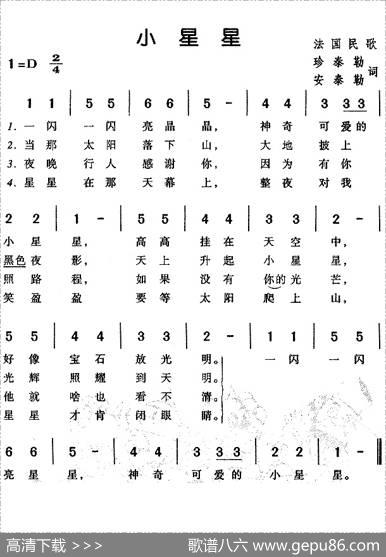 小星星
法国民歌
1=D 2/4
珍泰勒
安泰勒 词
1 1 | 5 5 | 6 6 | 5 - | 4 4 | 3 33 |
1. 一闪一闪亮晶晶, 神奇可爱的
2. 当那太阳落下山, 大地披上
3. 夜晚行人感谢你, 因为有你
4. 星星在那天幕上, 整夜对我
2 2 | 1 - | 5 5 | 4 4 | 3 3 | 2 - |
小星星, 高高挂在天空中,
黑色夜影, 天上升起小星星,
照路程, 如果没有你的光芒,
笑盈盈, 要等太阳爬上山,
5 5 | 4 4 | 3 3 | 2 - | 1 1 | 5 5 |
好像宝石放光明。 一闪一闪
光辉照耀到天明。
他就啥也看不清。
星星才肯闭眼睛。
6 6 | 5 - | 4 4 | 3 33 | 2 2 | 1 - ‖
亮星星, 神奇可爱的小星星。
高清下载 >>> 歌谱八六 www.gepu86.com